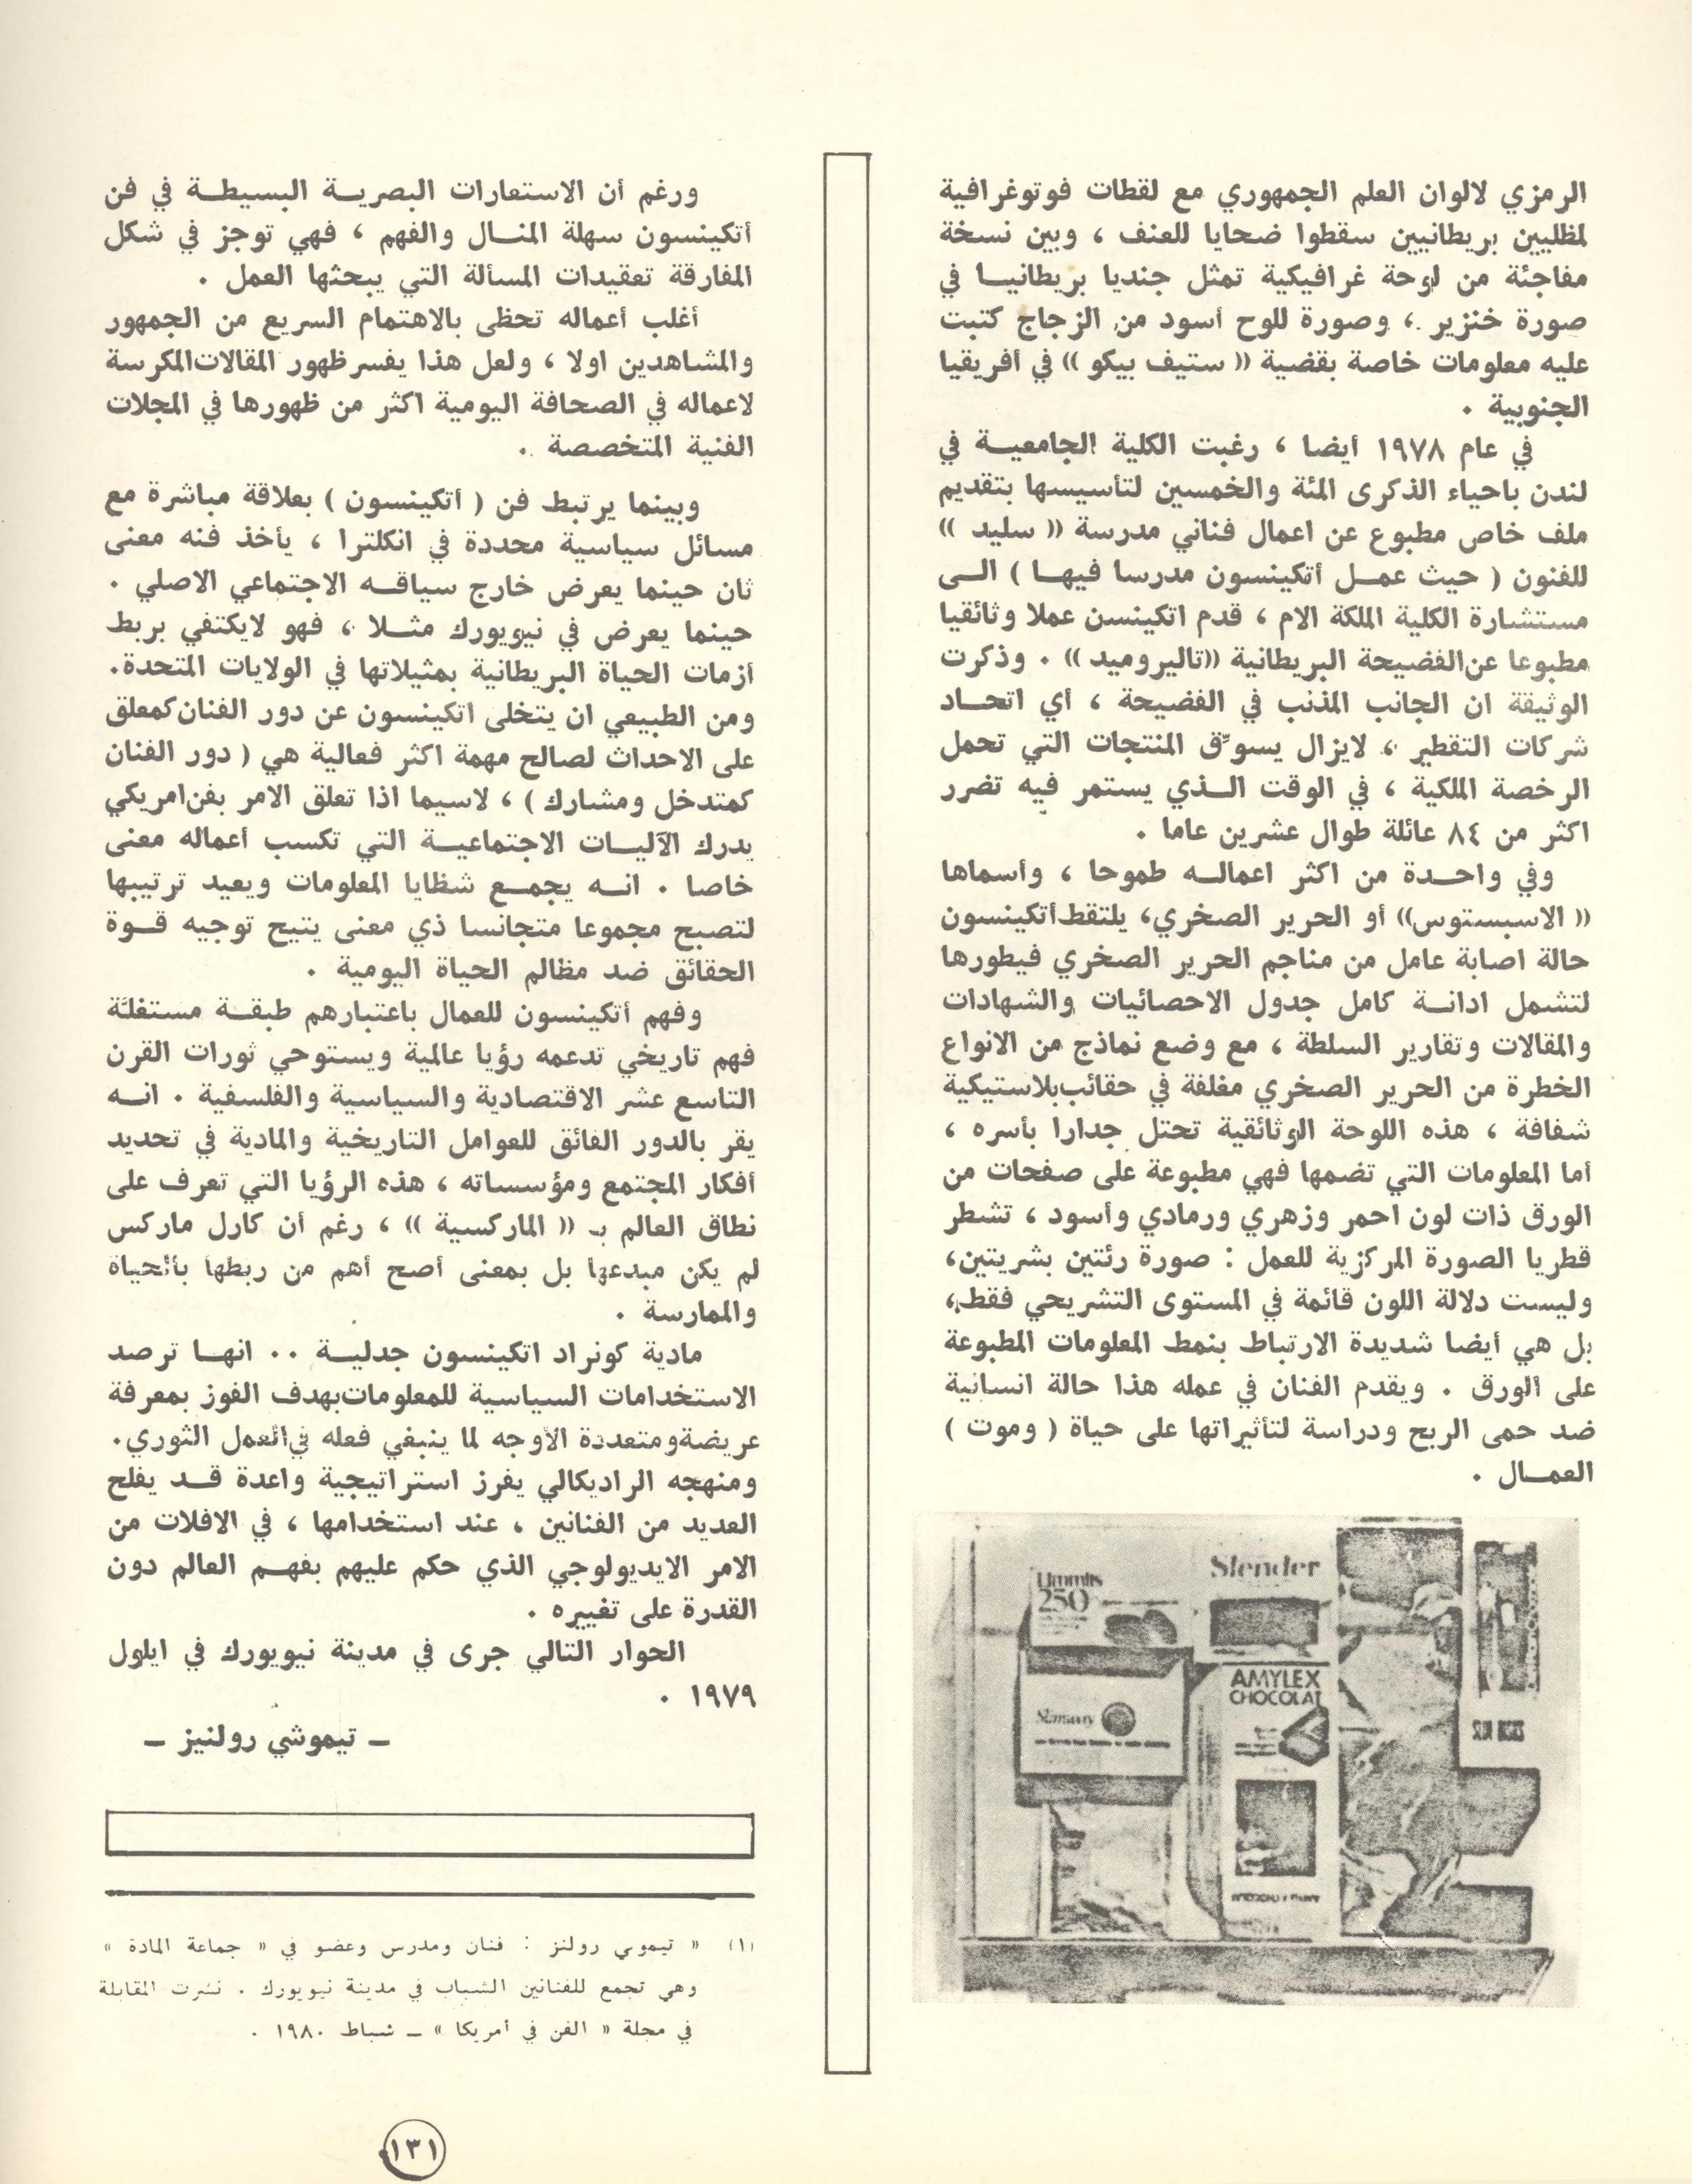 الرمزي لالوان العلم الجمهوري مع لقطات فوتوغرافية
لمظليين بريطانيين سقطوا ضحايا للعنف ، وبين نسخة
مفاجئة من لوحة غرافيكية تمثل جنديا بريطانيــا في
صورة خنزير ، وصورة للوح أسود من الزجاج كتبت
عليه معلومات خاصة بقضية (( ستيف بيكو )) في أفريقيا
الجنوبية .
في عام ١٩٧٨ أيضا ، رغبت الكلية الجامعيــة في
لندن باحياء الذكرى المئة والخمسين لتأسيسها بتقديم
ملف خاص مطبوع عن اعمال فناني مدرسة (( سليد ))
للفنون ( حيث عمــل أتكينسون مدرسا فيهــا ) الــى
مستشارة الكلية الملكة الام ، قدم اتكينسن عملا وثائقيا
مطبوعا عن الفضيحة البريطانية ((تاليروميد)) . وذكرت
الوثيقة ان الجانب المذنب في الفضيحة ، أي اتحــاد
شركات التقطير ، لايزال يسوّق المنتجات التي تحمل
الرخصة الملكية ، في الوقت الــذي يستمر فيه تضرر
اكثر من ٨٤ عائلة طوال عشرين عاما .
وفي واحــدة من اكثر اعمالــه طموحا ، وأسماها
(( الاسبستوس)) أو الحرير الصخري، يلتقط أتكينسون
حالة اصابة عامل من مناجم الحرير الصخري فيطورها
لتشمل ادانــة كامل جدول الاحصائيات والشهادات
والمقالات وتقارير السلطة ، مع وضع نماذج من الانواع
الخطرة من الحرير الصخري مغلفة في حقائب بلاستيكية
شفافة ، هذه اللوحة الوثائقية تحتل جدارا بأسره ،
أما المعلومات التي تضمها فهي مطبوعة على صفحات من
الورق ذات لون احمر وزهري ورمادي وأسود ، تشطر
قطريا الصورة المركزية للعمل : صورة رئتين بشريتين،
وليست دلالة اللون قائمة في المستوى التشريحي فقط،
بل هي أيضا شديدة الارتباط بنمط المعلومات المطبوعة
على الورق . ويقدم الفنان في عمله هذا حالة انسانية
ضد حمى الربح ودراسة لتأثيراتها على حياة ( وموت )
العمــال .
Slender
250
AMYLEX
CHOCOLAT
ورغم أن الاستعارات البصريــة البسيطــة في فن
أتكينسون سهلة المنــال والفهم ، فهي توجز في شكل
المفارقة تعقيدات المسألة التي يبحثها العمل .
أغلب أعماله تحظى بالاهتمام السريع من الجمهور
والمشاهدين اولا ، ولعل هذا يفسر ظهور المقالات المكرسة
لاعماله في الصحافة اليومية اكثر من ظهورها في المجلات
الفنية المتخصصة .
وبينما يرتبط فن ( أتكينسون ) بعلاقة مباشرة مع
مسائل سياسية محددة في انكلترا ، يأخذ فنه معنى
ثان حينما يعرض خارج سياقــه الاجتماعي الاصلي .
حينما يعرض في نيويورك مثــلا ، فهو لايكتفي بربط
أزمات الحياة البريطانية بمثيلاتها في الولايات المتحدة.
ومن الطبيعي ان يتخلى اتكينسون عن دور الفنان كمعلق
على الاحداث لصالح مهمة اكثر فعالية هي ( دور الفنان
كمتدخل ومشارك ) ، لاسيما اذا تعلق الامر بفن امريكي
يدرك الآليــات الاجتماعيــة التي تكسب أعماله معنى
خاصا . انــه يجمــع شظايا المعلومات ويعيد ترتيبها
لتصبح مجموعا متجانسا ذي معنى يتيح توجيه قــوة
الحقائق ضد مظالم الحياة اليومية .
وفهم أتكينسون للعمال باعتبارهم طبقــة مستغلّة
فهم تاريخي تدعمه رؤيا عالمية ويستوحي ثورات القرن
التاسع عشر الاقتصادية والسياسية والفلسفية . انــه
يقر بالدور الفائق للعوامل التاريخية والمادية في تحديد
أفكار المجتمع ومؤسساته ، هذه الرؤيا التي تعرف على
نطاق العالم بـ (( الماركسية )) ، رغم أن كارل ماركس
لم يكن مبدعها بل بمعنى أصح أهم من ربطها بالحياة
والممارسة .
مادية كونراد اتكينسون جدليــة .. انهــا ترصد
الاستخدامات السياسية للمعلومات بهدف الفوز بمعرفة
عريضة ومتعددة الأوجه لما ينبغي فعله في العمل الثوري.
ومنهجه الراديكالي يفرز استراتيجية واعدة قــد يفلح
العديد من الفنانين ، عند استخدامها ، في الافلات من
الامر الايديولوجي الذي حكم عليهم بفهــم العالم دون
القدرة على تغييره .
الحوار التالي جرى في مدينة نيويورك في ايلول
١٩٧٩ .
ــ تيموشي رولنيز ــ
(١) « تيموبي رولنز : فنان ومدرس وعضو في « جماعة المادة »
وهي تجمع للفنانين الشباب في مدينة نيويورك . نشرت المقابلة
في مجلة « الفن في أمريكا » ــ شباط ١٩٨٠ .
١٣١